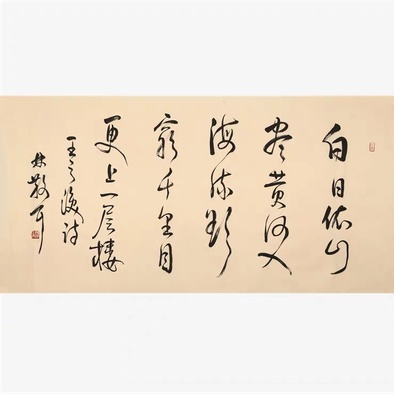 白日依山
尽黄河入
海流欲
穷千里目
更上一层楼
王之涣诗
林散耳